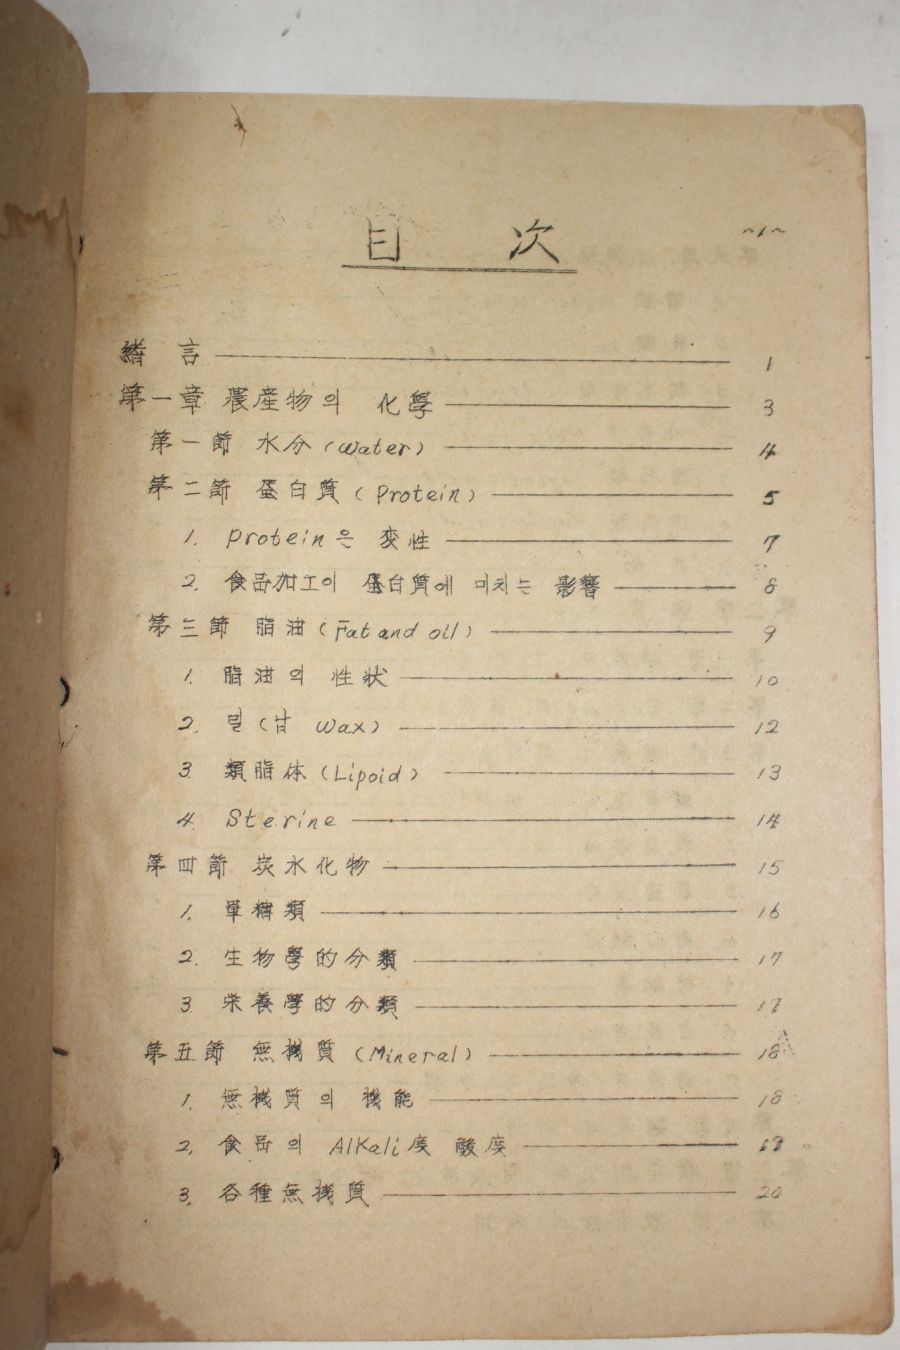 目 次
~1~
緖 言 1
第一章 農産物의 化學 3
第一節 水分 (Water) 4
第二節 蛋白質 (Protein) 5
1. Protein은 変性 7
2. 食品加工이 蛋白質에 미치는 影響 8
第三節 脂油 (Fat and oil) 9
1. 脂油의 性状 10
2. 밀(甘 Wax) 12
3. 類脂体 (Lipoid) 13
4. Sterine 14
第四節 炭水化物 15
1. 單糖類 16
2. 生物學的分類 17
3. 栄養學的分類 17
第五節 無機質 (Mineral) 18
1. 無機質의 機能 18
2. 食品의 Alkali度 酸度 19
3. 各種無機質 20